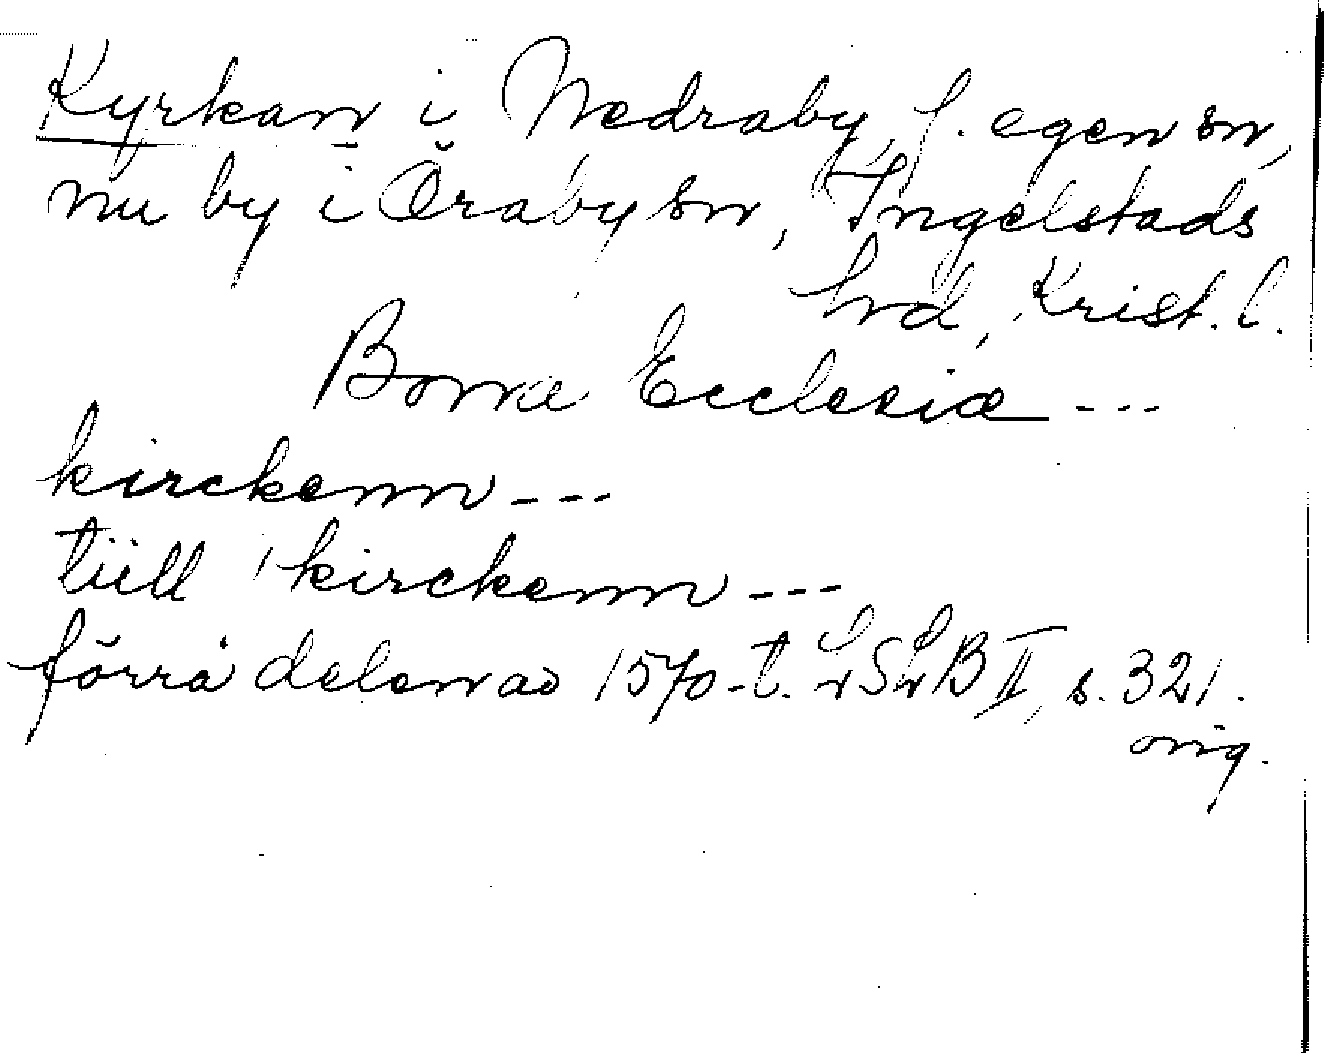 Kyrkan i Nedraby, f. egen sn,
nu by i Öraby sn, Ingelstads
hd, Krist. l.
Bonæ Ecclesiæ ---
kirckenn ---
tiill kirckenn ---
förra delen av 1570-t. LSLB II, s. 321.
orig.